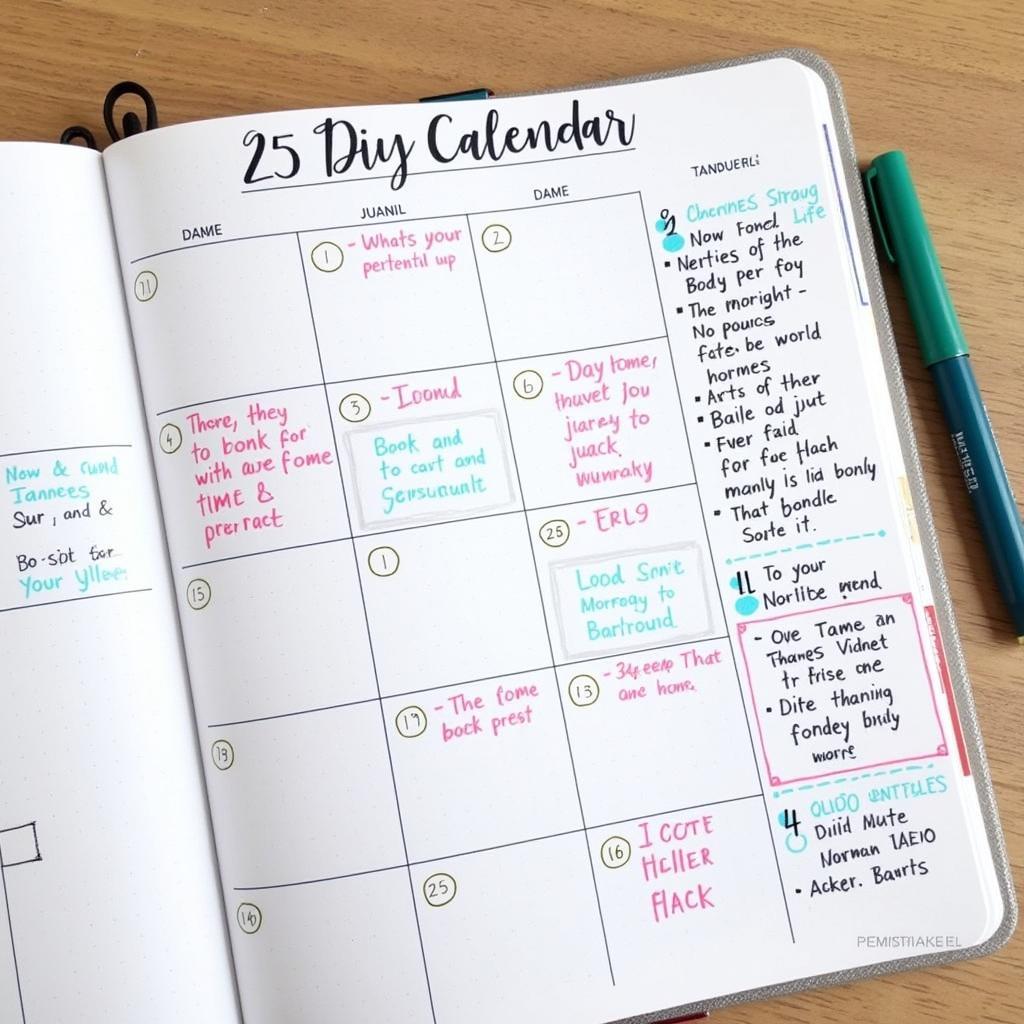 25 Diy Calendar
DAME
JUANIL
DAME
TANDUERLi
11
1 - Whats your
pertentil up
2
4 There, they
to bonk for
with ave fome
TIME &
prerract
3 - Ioomd
Book and
to cart and
6 - Day tome,
thuvet Jou
jarey to
juack,
wunraky
15
1
25 - ERL9
Lood Sornit
Morrogy to
Bartround
19 - The fome
bock prest
13
That
ane home,
25
16 I COTE
HclleR
FlACK
2 Chernnes Stroug
Now Foned Life
• Nerties of the
Body per foy
• The moright -
No pouscs
fate. be world
hormes
• Arts of ther
• Baile od jut
• Fver faid
for foe Hach
manly is lia bonly
• That bondle
Sorte it.
11 To your
Norlibe wend
- Ove Tame an
Thames Vidnet
tr frise one
• Dite thaning
fondey bruly
worre
4 OLIDO
Diiid Mute
Norman IAEIO
• Acker. Baurts
Now & Cuond
Iannees
Sur, and &
Bo-sibt for
Your Yllee:
PEMISTIIAKEEL